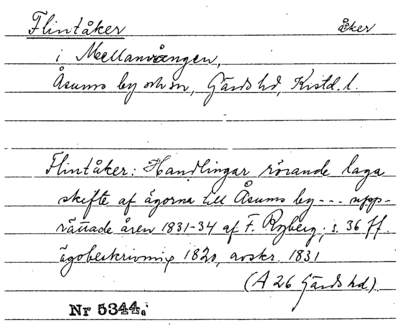 Flintåker åker
i Mellanvången,
Åsums by och sn, Gärds hd, Kristd. l.
Flintåker: Handlingar rörande laga
skifte af ägorna till Åsums by --- upp-
rättade åren 1831-34 af F. Ryberg; s. 36 ff.
ägobeskrivning 1820, avskr. 1831
(A 26 Gärds hd).
Nr 5344.